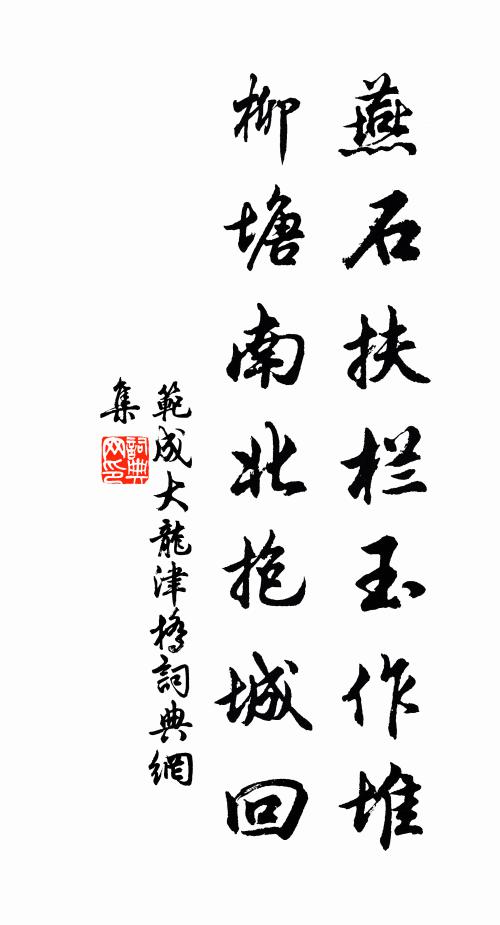 燕石扶栏玉作堆
柳塘南北抱城回
範成大龍津橋詞典網
集
詞典
网印